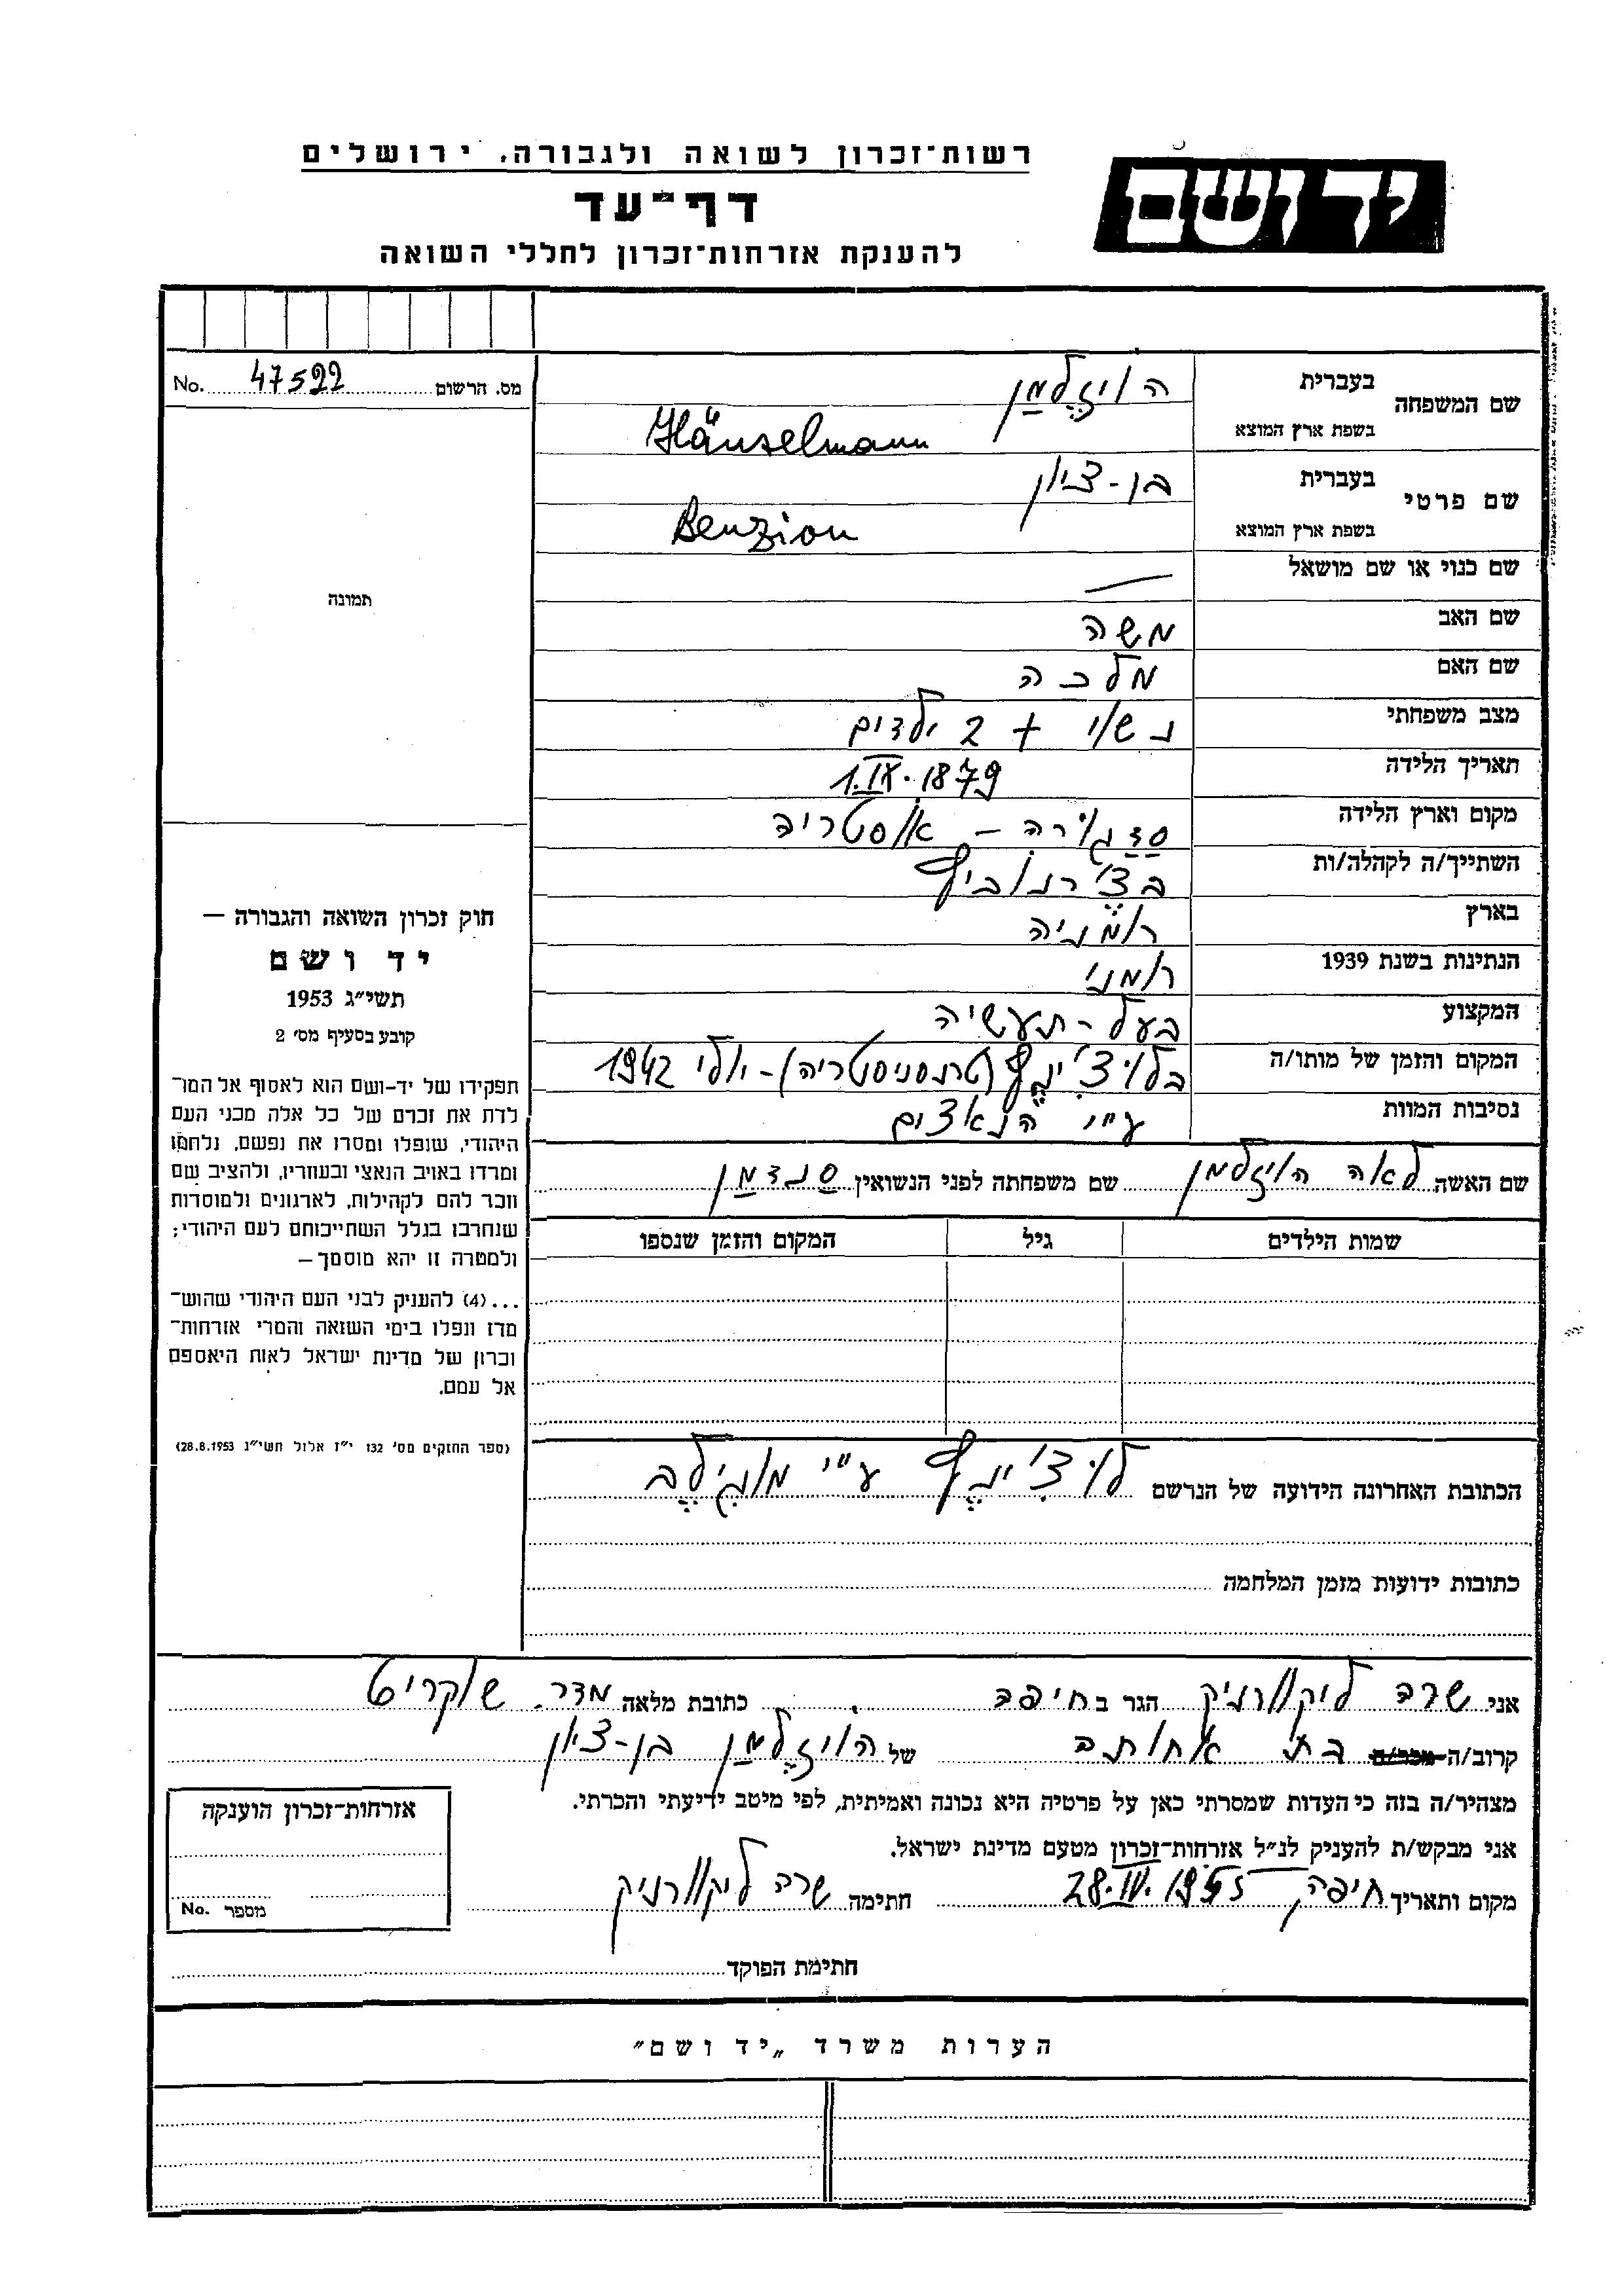 רשות־זכרון לשואה ולגבורה, ירושלים
יד ושם
דף־עד
להענקת אזרחות־זכרון לחללי השואה
מס. הרשום 47522 No.
שם המשפחה
בעברית הויזלמן
בשפת ארץ המוצא Hänselmann
שם פרטי
בעברית בן-ציון
בשפת ארץ המוצא Benzion
שם כנוי או שם מושאל —
שם האב משה
שם האם מלכה
מצב משפחתי נשוי + 2 ילדים
תאריך הלידה 1.IX.1879
מקום וארץ הלידה סדגורה – אוסטריה
השתייך/ה לקהלה/ות בצ'רנוביץ
בארץ רומניה
הנתינות בשנת 1939 רומני
המקצוע בעל-תעשיה
המקום והזמן של מותו/ה בלוצ'ינץ (טרנסניסטריה) - יולי 1942
נסיבות המוות ע"י הנאצים
שם האשה לאה הויזלמן שם משפחתה לפני הנשואין סנדמן
שמות הילדים גיל המקום והזמן שנספו
הכתובת האחרונה הידועה של הנרשם לוצ'ינץ ע"י מוגילב
כתובות ידועות מזמן המלחמה
תמונה
חוק זכרון השואה והגבורה —
יד ושם
תשי״ג 1953
קובע בסעיף מס׳ 2
תפקידו של יד-ושם הוא לאסוף אל המו־
לדת את זכרם של כל אלה מבני העם
היהודי, שנפלו ומסרו את נפשם, נלחמו
ומרדו באויב הנאצי ובעוזריו, ולהציב שם
וזכר להם לקהילות, לארגונים ולמוסדות
שנחרבו בגלל השתייכותם לעם היהודי;
ולמטרה זו יהא מוסמך —
...(4) להעניק לבני העם היהודי שהוש־
מדו ונפלו בימי השואה והמרי אזרחות־
זכרון של מדינת ישראל לאות היאספם
אל עמם.
(ספר החוקים מס׳ 132 י״ז אלול תשי״ג 28.8.1953)
אני שרה ליקוורניק הגר בחיפה כתובת מלאה מדר. שוקריט
קרוב/ה בת אחותה של הויזלמן בן-ציון
מצהיר/ה בזה כי העדות שמסרתי כאן על פרטיה היא נכונה ואמיתית, לפי מיטב ידיעתי והכרתי.
אני מבקש/ת להעניק לנ״ל אזרחות־זכרון מטעם מדינת ישראל.
מקום ותאריך חיפה 28.IV.1955 חתימה שרה ליקוורניק
אזרחות־זכרון הוענקה
מספר No.
חתימת הפוקד
הערות משרד „יד ושם״